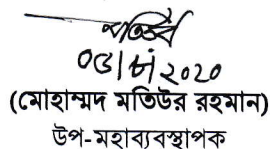 ০৫/২০২০
(মোহাম্মদ মতিউর রহমান)
উপ-মহাব্যবস্থাপক